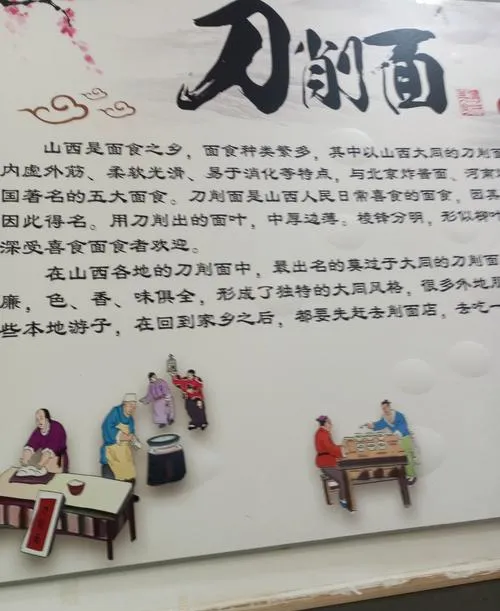 刀削面
山西是面食之乡，面食种类繁多，其中以山西大同的刀削面
内虚外筋、柔软光滑、易于消化等特点，与北京炸酱面、河南烩
国著名的五大面食。刀削面是山西人民日常喜食的面食，因其
因此得名。用刀削出的面叶，中厚边薄。棱锋分明，形似柳叶
深受喜食面食者欢迎。
在山西各地的刀削面中，最出名的莫过于大同的刀削面
廉，色、香、味俱全，形成了独特的大同风格，很多外地朋
些本地游子，在回到家乡之后，都要先赶去削面店，去吃一